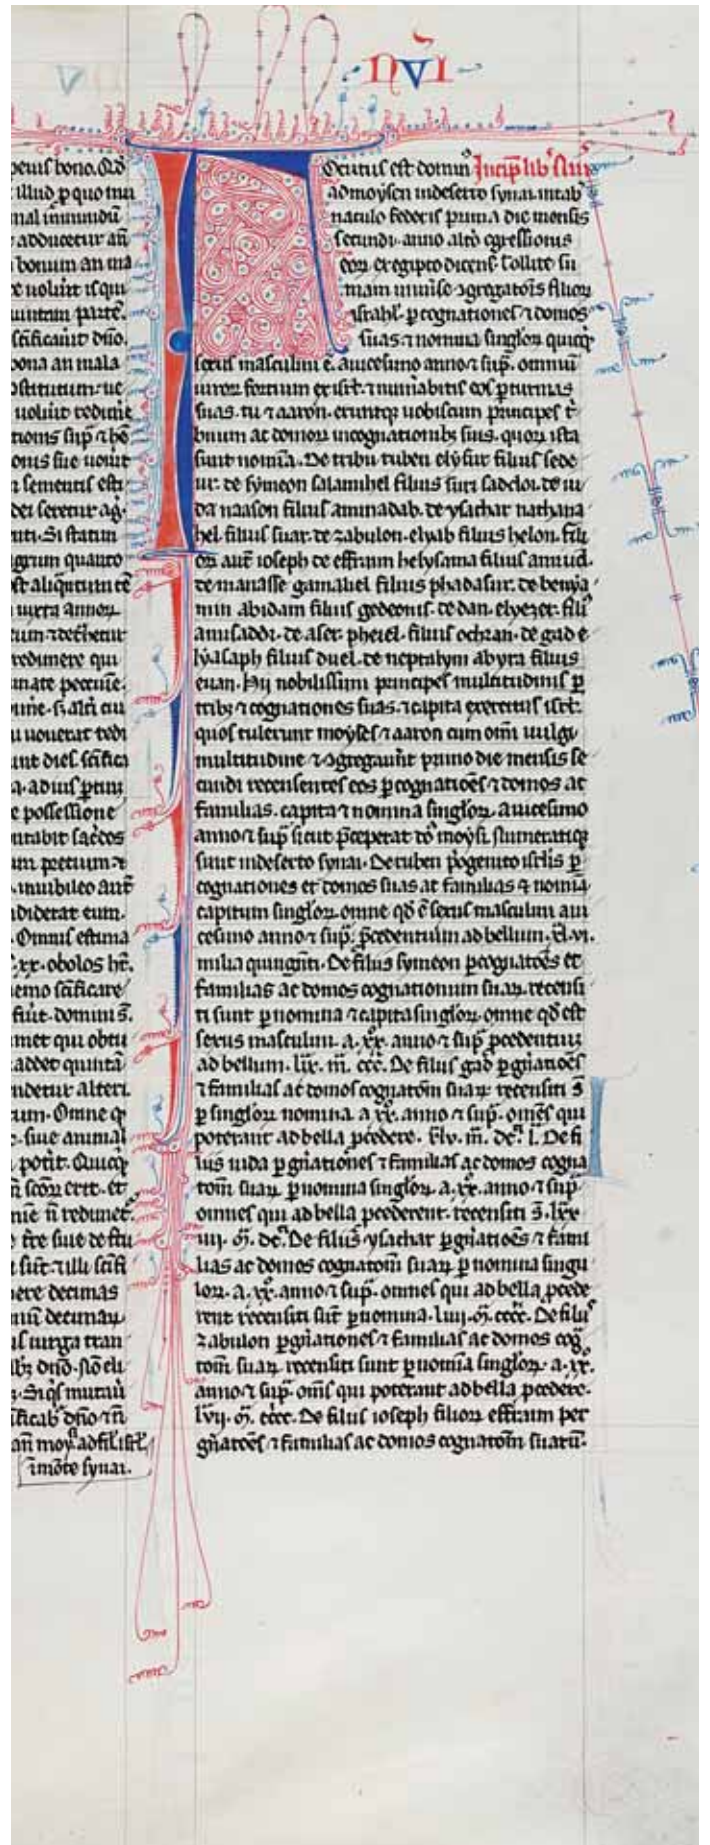 NVI
peius bono. Qd
illud p quo mu
nal inmundū
adducetur an̄
bonum an ma
uoluit is qui
quintam partē.
scificauit dn̄o.
bona an mala
uoluit redime
sementis est
dei seretur ag̃.
Si statim
agrum quanto
iuxta annoꝝ
redimere qui
uouerat redi
a. ad ius ptin
possessione
putabit sac̃dos
pretium ⁊
inuibileo aut̃
Omnis estima
.xx. obolos ht̃.
nemo scificare
fu̾it. domini s̄.
addet quintā
uendetur alteri
Omne q
siue animal
potit. Quicq̃
scōꝝ erit. et
tr̄e siue de fru
sūt ⁊ illi scifi
decimas
uirga tran
an̄ moy̾. ad fil. isrl̾
ī mōte synai.
Incip̄ lib̾ Nūi
Locutus est domin̾
ad moysen in deserto synai. in tab̾
naculo federis prima die mensis
secundi. anno alt̾o egressionis
eoꝝ ex egipto dicens. Tollite su
mam uniu̾se ɔgregatōis filioꝝ
israhl. p cognationes ⁊ domos
suas. ⁊ nomina singloꝝ quicq̾
sexus masculini ē. a uicesimo anno ⁊ sup̄. omniū
uiroꝝ fortium ex isrl̾. ⁊ num̾abitis eos p turmas
suas. tu ⁊ aaron. eruntq̾ uobiscum principes t̾
buum ac domoꝝ in cognationibꝫ suis. quoꝝ ista
sunt nomīa. De tribu ruben elysur filius sede
ur. de symeon salamihel filius suri sadday. de iu
da naason filius aminadab. de ysachar nathana
hel filius suar. de zabulon. elyab filius helon. fili
oꝝ aut̄ ioseph de effraim helysama filius amiud.
de manasse gamaliel filius phadasur. de benya
min abidam filius gedeonis. de dan. elyezer. fili̾
amisaddi. de aser. pheiel. filius ochran. de gad e
lyasaph filius duel. de neptalym abyra filius
enan. Hii nobilissimi principes multitudinis p
tribꝫ ⁊ cognationes suas. ⁊ capita exercitus isrl̾.
quos tulerunt moyses ⁊ aaron cum om̄i uulgi
multitudine ⁊ ɔgregauͬnt primo die mensis se
cundi recensentes eos p cognatiōes ⁊ domos ac
familias. capita ⁊ nomina singloꝝ. a uicesimo
anno ⁊ sup̄ sicut p̄ceperat dō moysi. Numeratiq̾
sunt in deserto synai. De ruben p̾ogenito isrl̾is p
cognationes et domos suas ac familias ⁊ nomīa
capitum singloꝝ. omne qd̄ ē sexus masculini a ui
cesimo anno ⁊ sup̄. p̄cedentium ad bellum. xl. vi.
milia quingn̄ti. De filiis symeon p cognatōes et
familias ac domos cognationum suaꝝ. recensi
ti sunt p nomina ⁊ capita singloꝝ. omne qd̄ est
sexus masculini. a. xx̊. anno ⁊ sup̄ p̄cedentiuꝫ
ad bellum. lix. m̄. ccc̄. De filiis gad p gn̄atiōes
⁊ familias ac domos cognatōm suaꝝ recensiti s̄
p singloꝝ nomina. a xx̊. anno ⁊ sup̄. om̄es qui
poterant ad bella p̄cedere. xlv. m̄. dc̄. l. De fi
liis iuda p gn̄ationes ⁊ familias ac domos cogna
tom̄ suaꝝ p nomina singloꝝ. a. xx̊. anno ⁊ sup̄
omnes qui ad bella p̄cederent. recensiti s̄. lxx
iiii. m̄. dc̄. De filiis ysachar p gn̄atiōes ⁊ famil
lias ac domos cognatom̄ suaꝝ p nomina singu
loꝝ. a. xx̊. anno ⁊ sup̄. omnes qui ad bella p̄cede
rent recensiti sūt p nomina. liiii. m̄. cccc̄. De filiis
zabulon p gn̄ationes ⁊ familias ac domos cog̃
tom̄ suaꝝ recensiti sunt p nomīa singloꝝ. a. xx̊.
anno ⁊ sup̄. om̄s qui poterant ad bella p̄cedere.
lvii. m̄. cccc̄. De filiis ioseph filioꝝ effraim per
gn̄atōes ⁊ familias ac domos cognatom̄ suarū.